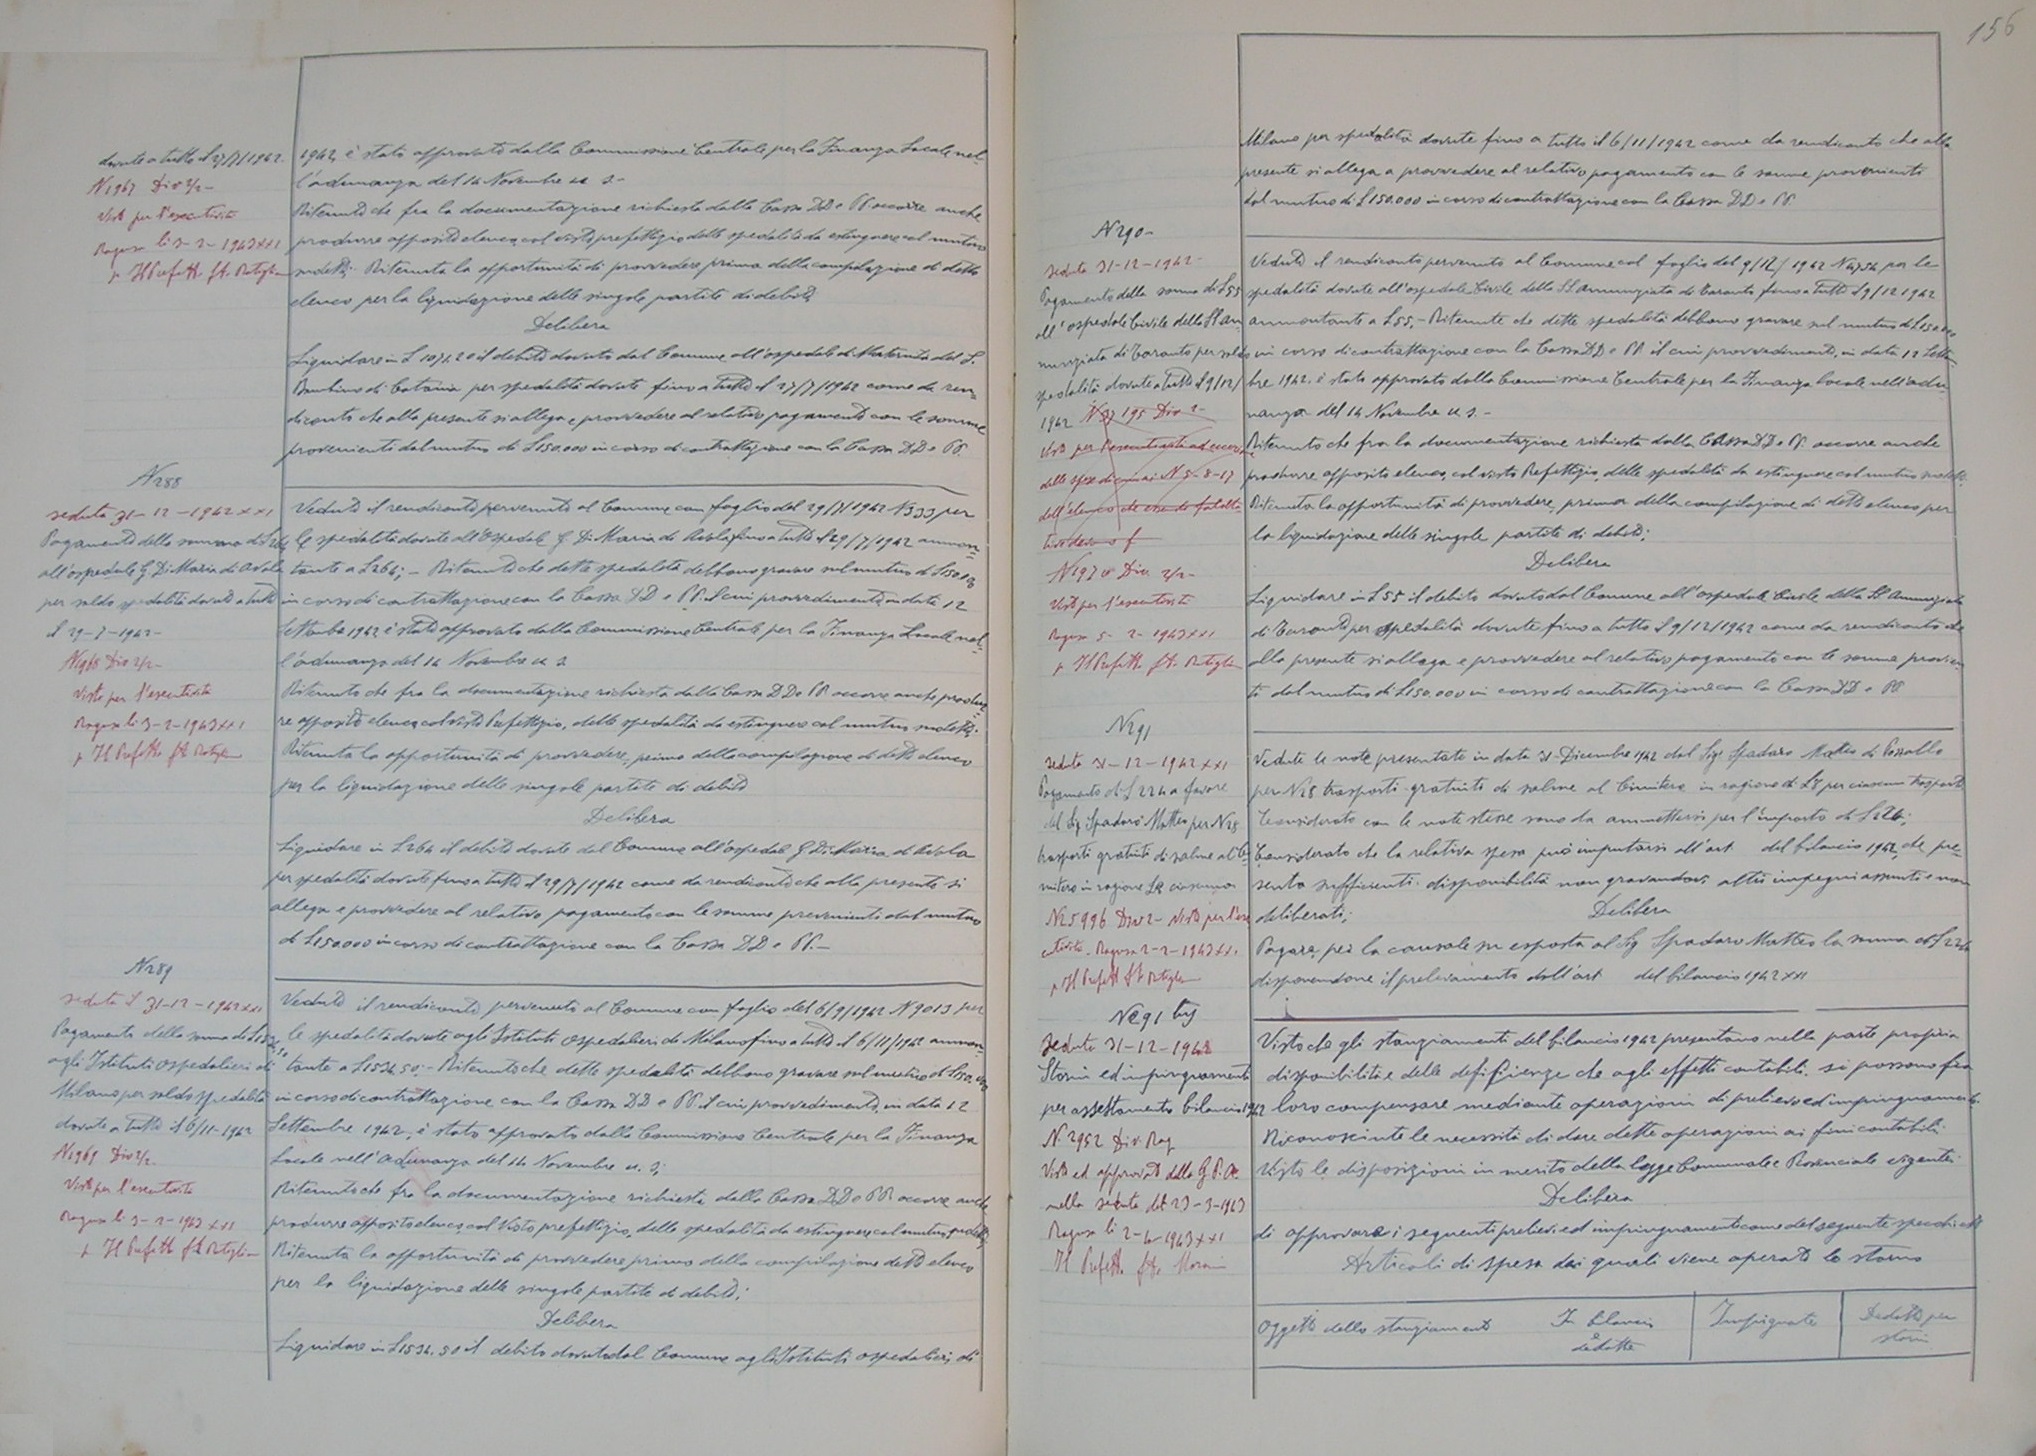 156
dovute a tutto il 27/7/1942.
N 1967 Div 2/2 -
Visto per l'esecutività
Ragusa li 3-2-1943 XXI
p Il Prefetto ft.
1942, è stato approvato dalla Commissione Centrale per la Finanza Locale nel-
l'adunanza del 14 Novembre u s.-
Ritenuto che fra la documentazione richiesta dalla Cassa DD e PP. occorre anche
produrre apposito elenco, col visto prefettizio, delle spedalità da estinguere col mutuo
sudetto; Ritenuta la opportunità di provvedere prima della compilazione di detto
elenco per la liquidazione delle singole partite di debito
Delibera
Liquidare in L 1074.20 il debito dovuto dal Comune all'ospedale di Maternità del S.
Bambino di Catania per spedalità dovute fino a tutto il 27/7/1942 come da ren-
diconto che alla presente si allega e provvedere al relativo pagamento con le somme
provenienti dal mutuo di L 150.000 in corso di contrattazione con la Cassa DD e PP.
N 288
seduta 31-12-1942 XXI
Pagamento della somma di L 264
all'ospedale G. Di Maria di Avola
per saldo spedalità dovute a tutto
il 29-7-1942-
N 1968 Div 2/2-
Visto per l'esecutività
Ragusa li 3-2-1943 XXI
p Il Prefetto ft.
Veduto il rendiconto pervenuto al Comune con foglio del 29/7/1942 N 333 per
le spedalità dovute all'Ospedale G. Di Maria di Avola fino a tutto il 29/7/1942 ammon-
tante a L 264; - Ritenuto che dette spedalità debbono gravare sul mutuo di L 150.000
in corso di contrattazione con la Cassa DD e PP. il cui provvedimento, in data 12
Settembre 1942 è stato approvato dalla Commissione Centrale per la Finanza Locale nel-
l'adunanza del 14 Novembre u s
Ritenuto che fra la documentazione richiesta dalla Cassa DD e PP. occorre anche produr-
re apposito elenco, col visto Prefettizio, delle spedalità da estinguere col mutuo sudetto;
Ritenuta la opportunità di provvedere, prima della compilazione di detto elenco
per la liquidazione delle singole partite di debito
Delibera
Liquidare in L 264 il debito dovuto dal Comune all'ospedale G Di Maria di Avola
per spedalità dovute fino a tutto il 29/7/1942 come da rendiconto che alla presente si
allega e provvedere al relativo pagamento con le somme provenienti dal mutuo
di L 150.000 in corso di contrattazione con la Cassa DD e PP.-
N 289
seduta d 31-12-1942 XXI
Pagamento della somma di L 1534,50
agli Istituti Ospedalieri di
Milano per saldo spedalità
dovute a tutto il 6/11-1942
N 1969 Div 2/2.
Visto per l'esecutività
Ragusa li 3-2-1943 XXI
p Il Prefetto ft.
Veduto il rendiconto pervenuto al Comune con foglio del 6/9/1942 N 9013 per
le spedalità dovute agli Istituti ospedalieri di Milano fino a tutto il 6/11/1942 ammon-
tante a L 1534.50; - Ritenuto che dette spedalità debbono gravare sul mutuo di L 150.000
in corso di contrattazione con la Cassa DD e PP. il cui provvedimento, in data 12
Settembre 1942, è stato approvato dalla Commissione Centrale per la Finanza
Locale nell'adunanza del 14 Novembre u. s;
Ritenuto che fra la documentazione richiesta dalla Cassa DD e PP. occorre anche
produrre apposito elenco, col visto prefettizio, delle spedalità da estinguere col mutuo sudetto;
Ritenuta la opportunità di provvedere prima della compilazione detto elenco
per la liquidazione delle singole partite di debito;
Delibera
Liquidare in L 1534.50 il debito dovuto dal Comune agli Istituti ospedalieri di
Milano per spedalità dovute fino a tutto il 6/11/1942 come da rendiconto che alla
presente si allega a provvedere al relativo pagamento con le somme provenienti
dal mutuo di L 150.000 in corso di contrattazione con la Cassa DD e PP.
N 290-
seduta 31-12-1942-
Pagamento della somma di L 55
all'ospedale Civile della SS An
nunziata di Taranto per saldo
spedalità dovute a tutto il 9/12/
1942 N 37195 Div 2-
Visto per l'esecutività ad eccez.
delle spese di cui ai N 5-8-17
dell'elenco
N 1970 Div. 2/2-
Visto per l'esecutività
Ragusa 5-2-1943 XXI
p Il Prefetto ft.
Veduto il rendiconto pervenuto al Comune col foglio del 9/12/1942 N 4754 per le
spedalità dovute all'ospedale Civile della SS. Annunziata di Taranto fino a tutto il 9/12 1942
ammontante a L 55.- Ritenuto che dette spedalità debbono gravare sul mutuo di L 150.000
in corso di contrattazione con la Cassa DD e PP. il cui provvedimento, in data 12 Sette-
bre 1942, è stato approvato dalla Commissione Centrale per la Finanza locale nell'adu-
nanza del 14 Novembre u. s.-
Ritenuto che fra la documentazione richiesta dalla Cassa DD e PP. occorre anche
produrre apposito elenco, col visto Prefettizio, delle spedalità da estinguere col mutuo sudetto;
Ritenuta la opportunità di provvedere, prima della compilazione di detto elenco per
la liquidazione delle singole partite di debito;
Delibera
Liquidare in L 55 il debito dovuto dal Comune all'ospedale Civile della SS Annunziata
di Taranto per spedalità dovute fino a tutto il 9/12/1942 come da rendiconto che
alla presente si allega e provvedere al relativo pagamento con le somme provenien
ti dal mutuo di L 150.000 in corso di contrattazione con la Cassa DD e PP
N 291
seduta 31-12-1942 XXI
Pagamento di L 224 a favore
del Sig Spadaro Matteo per N 28
trasporti gratuiti di salme al Ci-
mitero in ragione L 8 ciascuno
N 25996 Div 2- Visto per l'ese
cutività. Ragusa 2-2-1943 XXI.
p Il Prefetto ft
Vedute le note presentate in data 31 Dicembre 1942 dal Sig. Spadaro Matteo di Pozzallo
per N 28 trasporti gratuiti di salme al Cimitero in ragione di L 8 per ciascun trasporto
Considerato con le note stesse sono da ammettersi per l'importo di L 224;
Considerato che la relativa spesa può imputarsi all'art del bilancio 1942, che pre-
senta sufficiente disponibilità non gravandovi altri impegni assunti e non
deliberati;
Delibera
Pagare, per la causale su esposta al Sig Spadaro Matteo la somma di L 224
disponendone il prelevamento dall'art del bilancio 1942 XXI
N 291 bis
Seduta 31-12-1942
Storni ed impinguamenti
per assestamento bilancio 1942
N. 2952 Div. Rag
Visto ed approvato dalla G. P. A.
nella seduta del 23-3-1943
Ragusa li 2-4-1943 XXI
Il Prefetto ft.
Visto che gli stanziamenti del bilancio 1942 presentano nella parte propria
disponibilità e delle deficienze che agli effetti contabili, si possono fra
loro compensare mediante operazioni di prelievo ed impinguamento.
Riconosciute le necessità di dare dette operazioni ai fini contabili
Visto le disposizioni in merito della legge Comunale e Provinciale vigente:
Delibera
di approvare i seguenti prelievi ed impinguamenti come del seguente specchietto
Articoli di spesa dei quali viene operato lo storno
Oggetto dello stanziamento
In bilancio
o
dedotte
Impignate
Dedotto per
storni